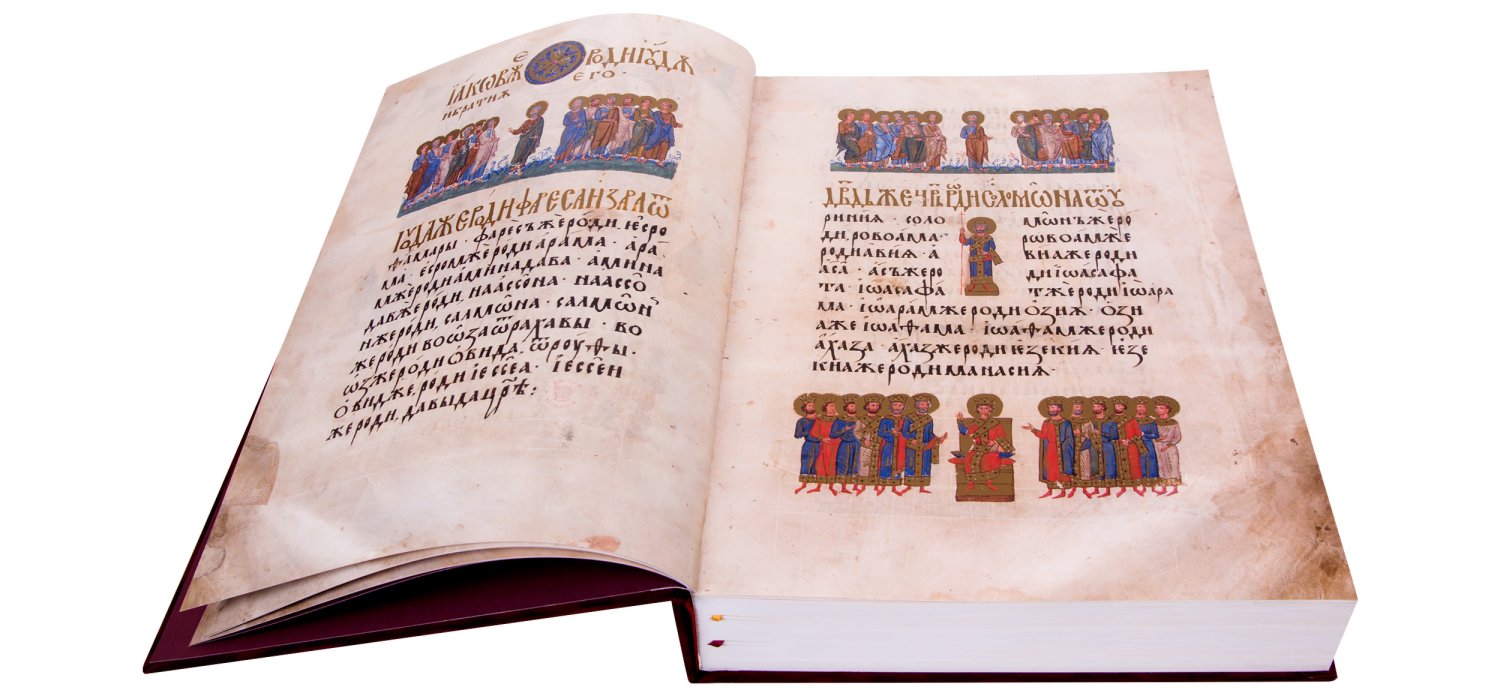 І҆АКѠВЖЕ РОДИ І҆Ꙋ́ДѪ
И БРАТИѪ ЕГО·
І҆Ꙋ́ДА ЖЕ РѠДИ ФАРЕСА И ЗАРА Ѿ
ѳамары · фаресъ же́роди, і҆е҆сро
ма · есромже́роди а҆ра́ма · а҆ра́
мжероди а́ми́надава · а҆мина
давже́ро́ди, наассѡ́на · наассѡ̑
нже́роди, салмѡ́на · салмѡ́н
жероди воѡ҆за ѿ ра́хавы · во
ѡ҆зжероди ѻ҆́вида, ѿ роу́ѳы ·
Ѻ҆́видже́роди і҆ессе́а · і҆ессеи
же́роди, давыда цр҃ѣ :
ДВ҃ДЬ ЖЕ Ц҃РЬ РѠДИ СОЛОМѠНА Ѿ ОУ
риинѧ · соло мѡнъже́ро
ди ровоа́ма · ровоа́мже
роди а҆виѧ · а҆ виѧжероди
аса̀ · а҆съже́ро ди і҆ѡасафа
та · і҆ѡ́асафа тже́роди і҆ѡ́ра
ма · і҆ѡ́ра́мжероди ѻ҆́зиѧ · ѻ҆зи
а́же і҆ѡаѳама · і҆ѡаѳа́мжероди
а҆ха́за · а҆ха́зжероди і҆е҆зекиѧ · і҆е҆зе
киа́же́ро́ди манасиѧ ·